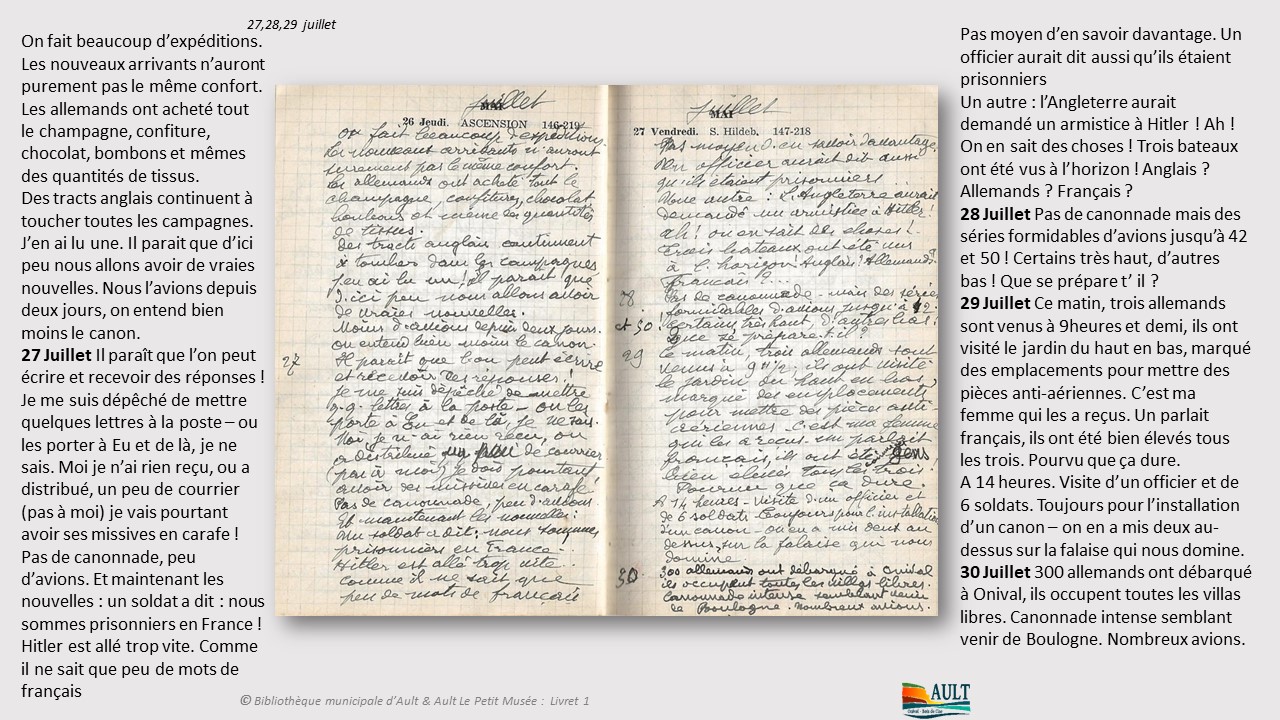 27,28,29 juillet
On fait beaucoup d’expéditions.
Les nouveaux arrivants n’auront
purement pas le même confort.
Les allemands ont acheté tout
le champagne, confiture,
chocolat, bombons et mêmes
des quantités de tissus.
Des tracts anglais continuent à
toucher toutes les campagnes.
J’en ai lu une. Il parait que d’ici
peu nous allons avoir de vraies
nouvelles. Nous l’avions depuis
deux jours, on entend bien
moins le canon.
27 Juillet Il paraît que l’on peut
écrire et recevoir des réponses !
Je me suis dépêché de mettre
quelques lettres à la poste – ou
les porter à Eu et de là, je ne
sais. Moi je n’ai rien reçu, ou a
distribué, un peu de courrier
(pas à moi) je vais pourtant
avoir ses missives en carafe !
Pas de canonnade, peu
d’avions. Et maintenant les
nouvelles : un soldat a dit : nous
sommes prisonniers en France !
Hitler est allé trop vite. Comme
il ne sait que peu de mots de
français
juillet
MAI
26 Jeudi. ASCENSION 146-219
on fait beaucoup d'expéditions.
Les nouveaux arrivants n'auront
surement pas le même confort.
Les allemands ont acheté tout le
champagne, confitures, chocolat
bonbons et même des quantités
de tissus.
Des tracts anglais continuent
à tomber dans les campagnes
j'en ai lu un, il parait que
d'ici peu nous allons avoir
de vraies nouvelles.
Moins d'avions depuis deux jours.
on entend bien moins le canon.
27 Il parait que l'on peut écrire
et recevoir des réponses !
Je me suis dépêché de mettre
q.q. lettres à la poste – on les
porte à Eu et de là, je ne sais.
Moi, je n'ai rien reçu, on
a distribué un peu de courrier
(pas à moi) je dois pourtant
avoir des missives en carafe !
Pas de canonnade, peu d'avions.
Et maintenant les nouvelles :
un soldat a dit : nous sommes
prisonniers en France.
Hitler est allé trop vite..
comme il ne sait que
peu de mots de français
juillet
MAI
27 Vendredi. S. Hildeb. 147-218
Pas moyen d'en savoir davantage.
Un officier aurait dit aussi
qu'ils étaient prisonniers...
autre : L'Angleterre aurait
demandé un armistice à Hitler !
ah ! on en sait des choses !
Trois bateaux ont été vus
à l'horizon ! Anglais ? Allemands ?
français ?...
28 Pas de canonnade – mais des séries
formidables d'avions jusqu'à 42
et 50 ! certains très haut, d'autres bas !
Que se prépare-t-il ?
29 Ce matin, trois allemands sont
venus à 9h½ ; ils ont visité
le jardin du haut en bas,
marqué des emplacements
pour mettre des pièces anti-
aériennes. C'est ma femme
qui les a reçus. un parlait
français, ils ont été gens
bien élevés tous les trois !
Pourvu que ça dure.
A 14 heures – visite d'un officier et
de 6 soldats – Toujours pour l'installation
d'un canon – on en a mis deux au
dessus, sur la falaise qui nous
domine.
30 300 allemands ont débarqué à Onival
ils occupent toutes les villas libres.
Canonnade intense semblant venir
de Boulogne. Nombreux avions.
Pas moyen d’en savoir davantage. Un
officier aurait dit aussi qu’ils étaient
prisonniers
Un autre : l’Angleterre aurait
demandé un armistice à Hitler ! Ah !
On en sait des choses ! Trois bateaux
ont été vus à l’horizon ! Anglais ?
Allemands ? Français ?
28 Juillet Pas de canonnade mais des
séries formidables d’avions jusqu’à 42
et 50 ! Certains très haut, d’autres
bas ! Que se prépare t’ il ?
29 Juillet Ce matin, trois allemands
sont venus à 9heures et demi, ils ont
visité le jardin du haut en bas, marqué
des emplacements pour mettre des
pièces anti-aériennes. C’est ma
femme qui les a reçus. Un parlait
français, ils ont été bien élevés tous
les trois. Pourvu que ça dure.
A 14 heures. Visite d’un officier et de
6 soldats. Toujours pour l’installation
d’un canon – on en a mis deux au-
dessus sur la falaise qui nous domine.
30 Juillet 300 allemands ont débarqué
à Onival, ils occupent toutes les villas
libres. Canonnade intense semblant
venir de Boulogne. Nombreux avions.
© Bibliothèque municipale d’Ault & Ault Le Petit Musée : Livret 1
AULT